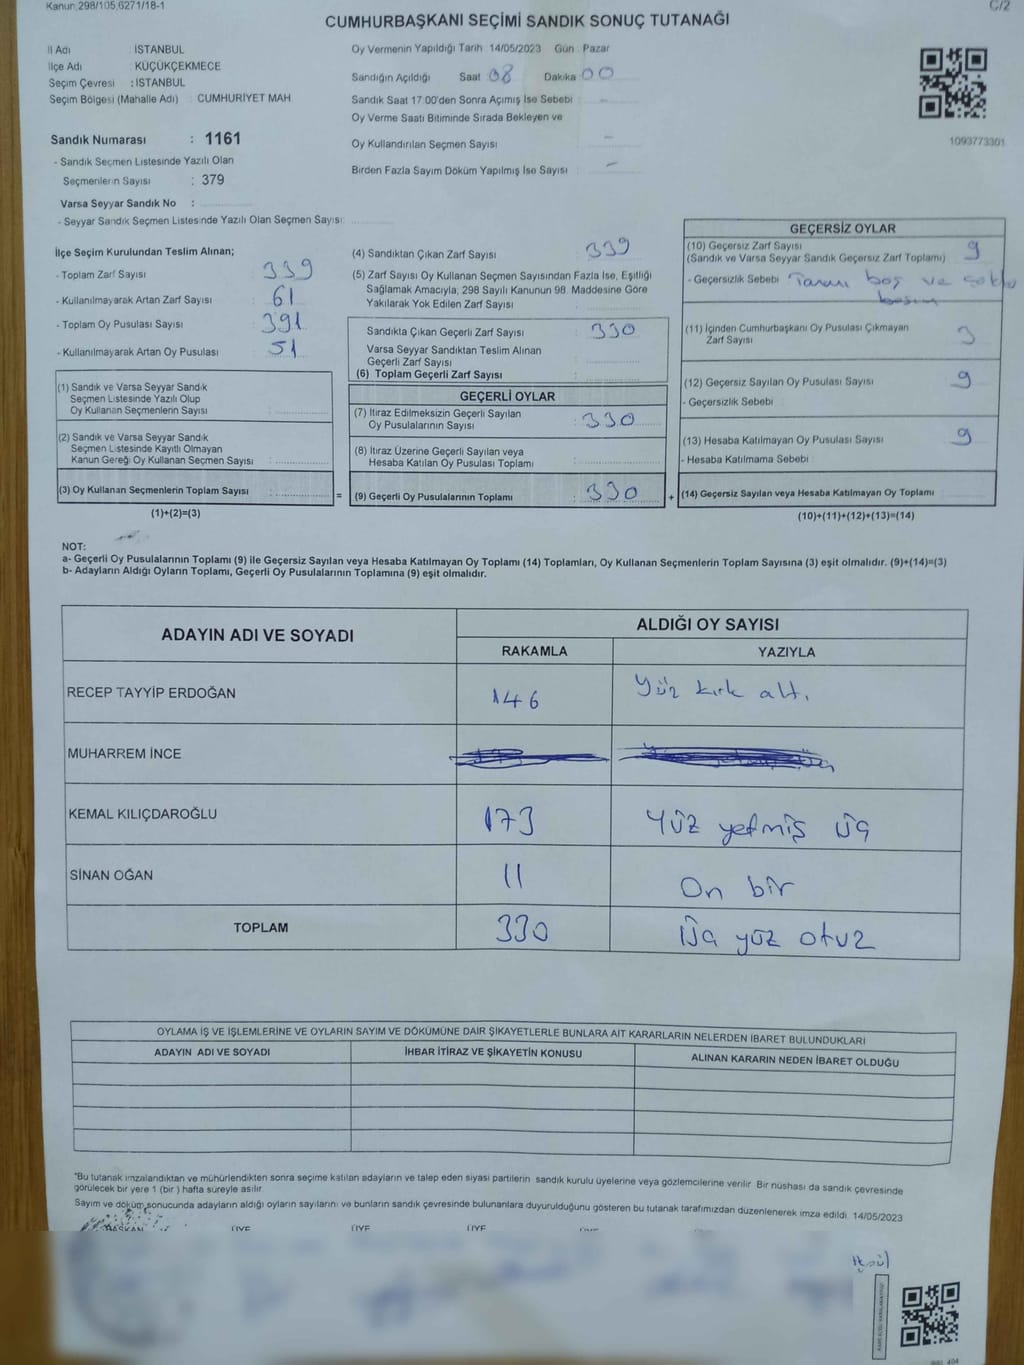 Kanun,298/105,6271/18-1
C/2
CUMHURBAŞKANI SEÇİMİ SANDIK SONUÇ TUTANAĞI
İl Adı : İSTANBUL
İlçe Adı : KÜÇÜKÇEKMECE
Seçim Çevresi : İSTANBUL
Seçim Bölgesi (Mahalle Adı) : CUMHURİYET MAH
Oy Vermenin Yapıldığı Tarih 14/05/2023 Gün : Pazar
Sandığın Açıldığı Saat 08 Dakika 00
Sandık Saat 17:00'den Sonra Açımış İse Sebebi : -
Oy Verme Saati Bitiminde Sırada Bekleyen ve
Oy Kullandırılan Seçmen Sayısı -
Birden Fazla Sayım Döküm Yapılmış İse Sayısı : -
1093773301
Sandık Numarası : 1161
- Sandık Seçmen Listesinde Yazılı Olan
Seçmenlerin Sayısı : 379
Varsa Seyyar Sandık No :
- Seyyar Sandık Seçmen Listesinde Yazılı Olan Seçmen Sayısı:
İlçe Seçim Kurulundan Teslim Alınan;
- Toplam Zarf Sayısı : 339
- Kullanılmayarak Artan Zarf Sayısı : 61
- Toplam Oy Pusulası Sayısı : 391
- Kullanılmayarak Artan Oy Pusulası : 51
(1) Sandık ve Varsa Seyyar Sandık
Seçmen Listesinde Yazılı Olup
Oy Kullanan Seçmenlerin Sayısı :
(2) Sandık ve Varsa Seyyar Sandık
Seçmen Listesinde Kayıtlı Olmayan
Kanun Gereği Oy Kullanan Seçmen Sayısı :
(3) Oy Kullanan Seçmenlerin Toplam Sayısı :
(1)+(2)=(3)
(4) Sandıktan Çıkan Zarf Sayısı : 339
(5) Zarf Sayısı Oy Kullanan Seçmen Sayısından Fazla İse, Eşitliği
Sağlamak Amacıyla, 298 Sayılı Kanunun 98. Maddesine Göre
Yakılarak Yok Edilen Zarf Sayısı :
Sandıkta Çıkan Geçerli Zarf Sayısı : 330
Varsa Seyyar Sandıktan Teslim Alınan
Geçerli Zarf Sayısı :
(6) Toplam Geçerli Zarf Sayısı :
=
GEÇERLİ OYLAR
(7) İtiraz Edilmeksizin Geçerli Sayılan
Oy Pusulalarının Sayısı : 330
(8) İtiraz Üzerine Geçerli Sayılan veya
Hesaba Katılan Oy Pusulası Toplamı :
(9) Geçerli Oy Pusulalarının Toplamı : 330
+
GEÇERSİZ OYLAR
(10) Geçersiz Zarf Sayısı : 9
(Sandık ve Varsa Seyyar Sandık Geçersiz Zarf Toplamı)
- Geçersizlik Sebebi : boş ve
(11) İçinden Cumhurbaşkanı Oy Pusulası Çıkmayan
Zarf Sayısı : 3
(12) Geçersiz Sayılan Oy Pusulası Sayısı : 9
- Geçersizlik Sebebi :
(13) Hesaba Katılmayan Oy Pusulası Sayısı : 9
- Hesaba Katılmama Sebebi :
(14) Geçersiz Sayılan veya Hesaba Katılmayan Oy Toplamı :
(10)+(11)+(12)+(13)=(14)
NOT:
a- Geçerli Oy Pusulalarının Toplamı (9) ile Geçersiz Sayılan veya Hesaba Katılmayan Oy Toplamı (14) Toplamları, Oy Kullanan Seçmenlerin Toplam Sayısına (3) eşit olmalıdır. (9)+(14)=(3)
b- Adayların Aldığı Oyların Toplamı, Geçerli Oy Pusulalarının Toplamına (9) eşit olmalıdır.
ADAYIN ADI VE SOYADI
ALDIĞI OY SAYISI
RAKAMLA YAZIYLA
RECEP TAYYİP ERDOĞAN 146 Yüz kırk altı
MUHARREM İNCE
KEMAL KILIÇDAROĞLU 173 Yüz yetmiş üç
SİNAN OĞAN 11 On bir
TOPLAM 330 Üç yüz otuz
OYLAMA İŞ VE İŞLEMLERİNE VE OYLARIN SAYIM VE DÖKÜMÜNE DAİR ŞİKAYETLERLE BUNLARA AİT KARARLARIN NELERDEN İBARET BULUNDUKLARI
ADAYIN ADI VE SOYADI İHBAR İTİRAZ VE ŞİKAYETİN KONUSU ALINAN KARARIN NEDEN İBARET OLDUĞU
*Bu tutanak imzalandıktan ve mühürlendikten sonra seçime katılan adayların ve talep eden siyasi partilerin sandık kurulu üyelerine veya gözlemcilerine verilir. Bir nüshası da sandık çevresinde
görülecek bir yere 1 (bir) hafta süreyle asılır.
Sayım ve döküm sonucunda adayların aldığı oyların sayılarını ve bunların sandık çevresinde bulunanlara duyurulduğunu gösteren bu tutanak tarafımızdan düzenlenerek imza edildi. 14/05/2023
BAŞKAN ÜYE ÜYE ÜYE ÜYE